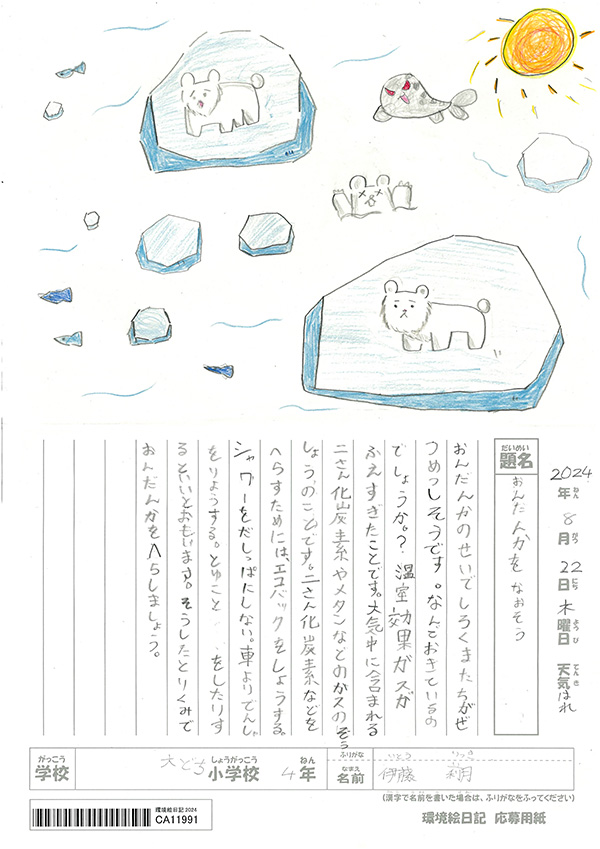 2024年8月22日木曜日 天気はれ
ねん がつ にち ようび てんき
だいめい
題名
おんだん人かを なおそう
おんだんかのせいでしろくまたちがぜ
つめっしそうです。なんでおきているの
でしょうか。? 温室効果ガスが
ふえすぎたことです。大気中に含まれる
二さん化炭素系やメタンなどのガスのぞう
しょうのことです。二さん化炭素などを
へらすためには、エコバックをしようする。
シャワーをだしっぱにしない。車よりでんし
をりようする。とゆこと をしたりす
るといいとおもいます。そうしたとりくみで
おんだんかをへらしましょう。
がっこう
学校
大どち小学校
しょうがっこう
4年
ねん
ふりがな
なまえ
名前
いとう
伊藤 利月
(漢字で名前を書いた場合は、ふりがなをふってください)
環境絵日記 2024
CA11991
環境絵日記 応募用紙